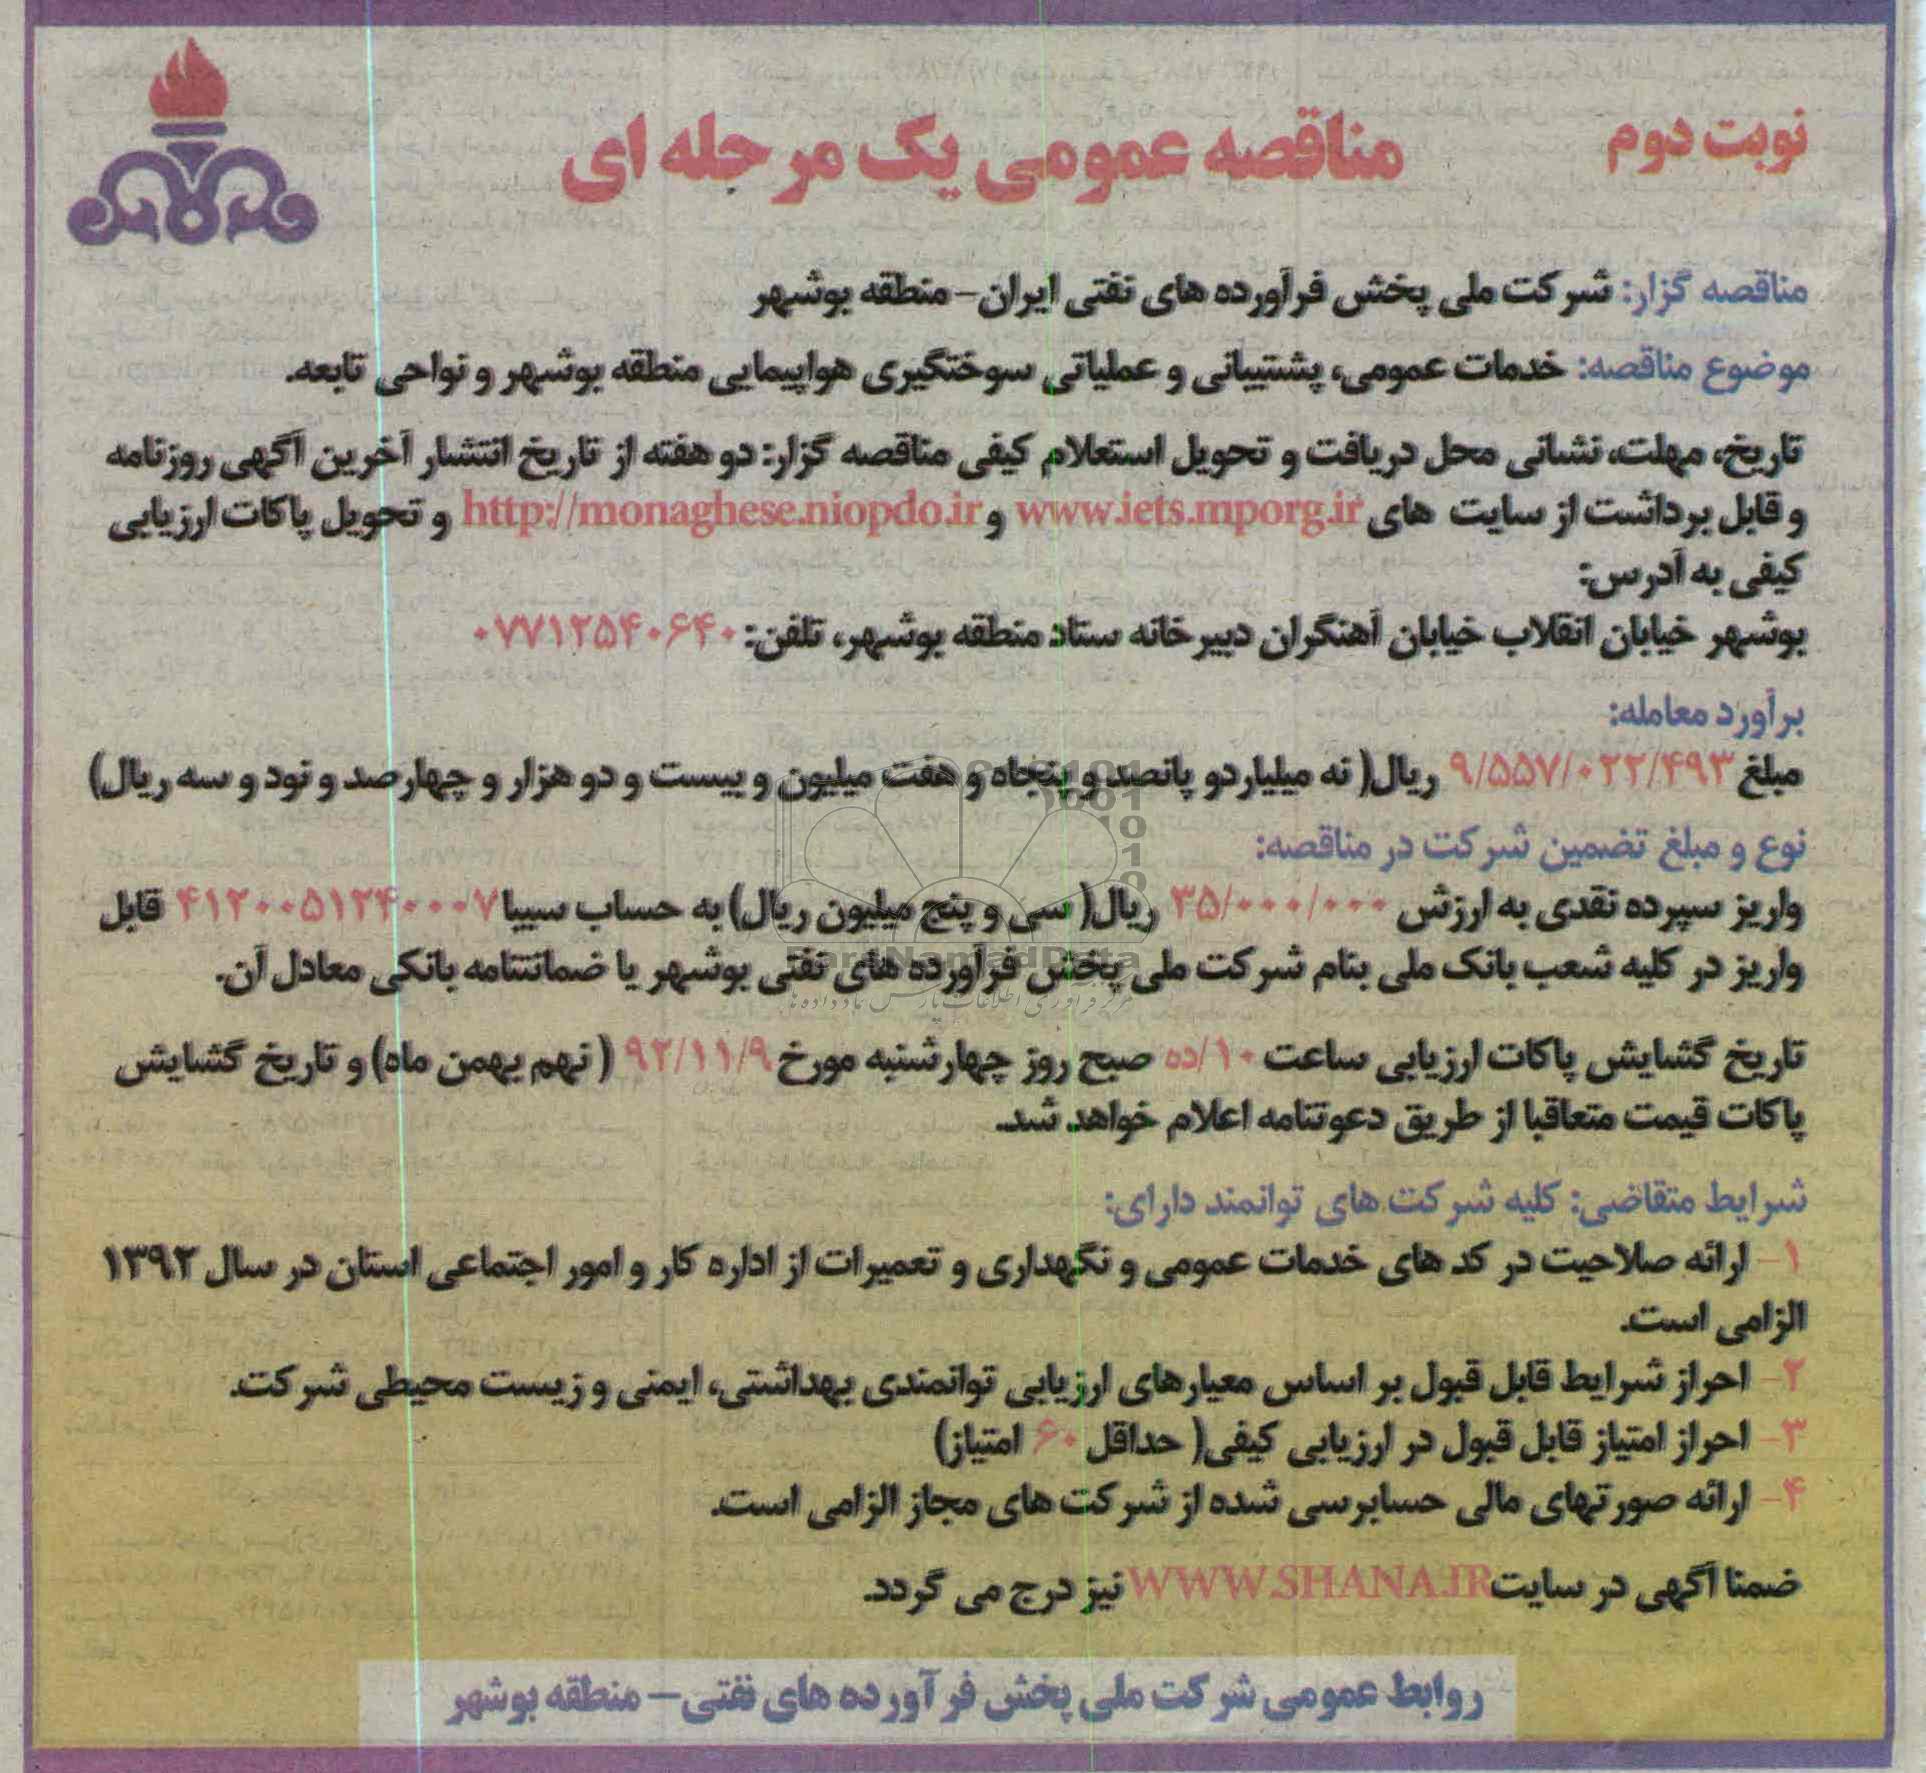 نوبت دوم
مناقصه عمومی یک مرحله ای
مناقصه گزار: شرکت ملی پخش فرآورده های نفتی ایران- منطقه بوشهر
موضوع مناقصه: خدمات عمومی، پشتیبانی و عملیاتی سوختگیری هواپیمایی منطقه بوشهر و نواحی تابعه.
تاریخ، مهلت، نشانی محل دریافت و تحویل استعلام کیفی مناقصه گزار: دو هفته از تاریخ انتشار آخرین آگهی روزنامه
و قابل برداشت از سایت های www.iets.mporg.ir و http://monaghese.niopdo.ir و تحویل پاکات ارزیابی
کیفی به آدرس:
بوشهر خیابان انقلاب خیابان آهنگران دبیرخانه ستاد منطقه بوشهر، تلفن: ۰۷۷۱۲۵۴۰۶۴۰
برآورد معامله:
مبلغ ۹/۵۵۷/۰۲۲/۴۹۳ ریال( نه میلیاردو پانصد و پنجاه و هفت میلیون و بیست و دو هزار و چهارصد و نود و سه ریال)
نوع و مبلغ تضمین شرکت در مناقصه:
واریز سپرده نقدی به ارزش ۳۵/۰۰۰/۰۰۰ ریال( سی و پنج میلیون ریال) به حساب سیبا ۴۱۲۰۰۵۱۲۴۰۰۰۷ قابل
واریز در کلیه شعب بانک ملی بنام شرکت ملی پخش فرآورده های نفتی بوشهر یا ضمانتنامه بانکی معادل آن.
تاریخ گشایش پاکات ارزیابی ساعت ۱۰/ده صبح روز چهارشنبه مورخ ۹۲/۱۱/۹ ( نهم بهمن ماه) و تاریخ گشایش
پاکات قیمت متعاقبا از طریق دعوتنامه اعلام خواهد شد.
شرایط متقاضی: کلیه شرکت های توانمند دارای:
۱- ارائه صلاحیت در کد های خدمات عمومی و نگهداری و تعمیرات از اداره کار و امور اجتماعی استان در سال ۱۳۹۲
الزامی است.
۲- احراز شرایط قابل قبول بر اساس معیارهای ارزیابی توانمندی بهداشتی، ایمنی و زیست محیطی شرکت.
۳- احراز امتیاز قابل قبول در ارزیابی کیفی( حداقل ۶۰ امتیاز)
۴- ارائه صورتهای مالی حسابرسی شده از شرکت های مجاز الزامی است.
ضمنا آگهی در سایت WWW.SHANA.IR نیز درج می گردد.
روابط عمومی شرکت ملی پخش فرآورده های نفتی- منطقه بوشهر
ParsNamadData